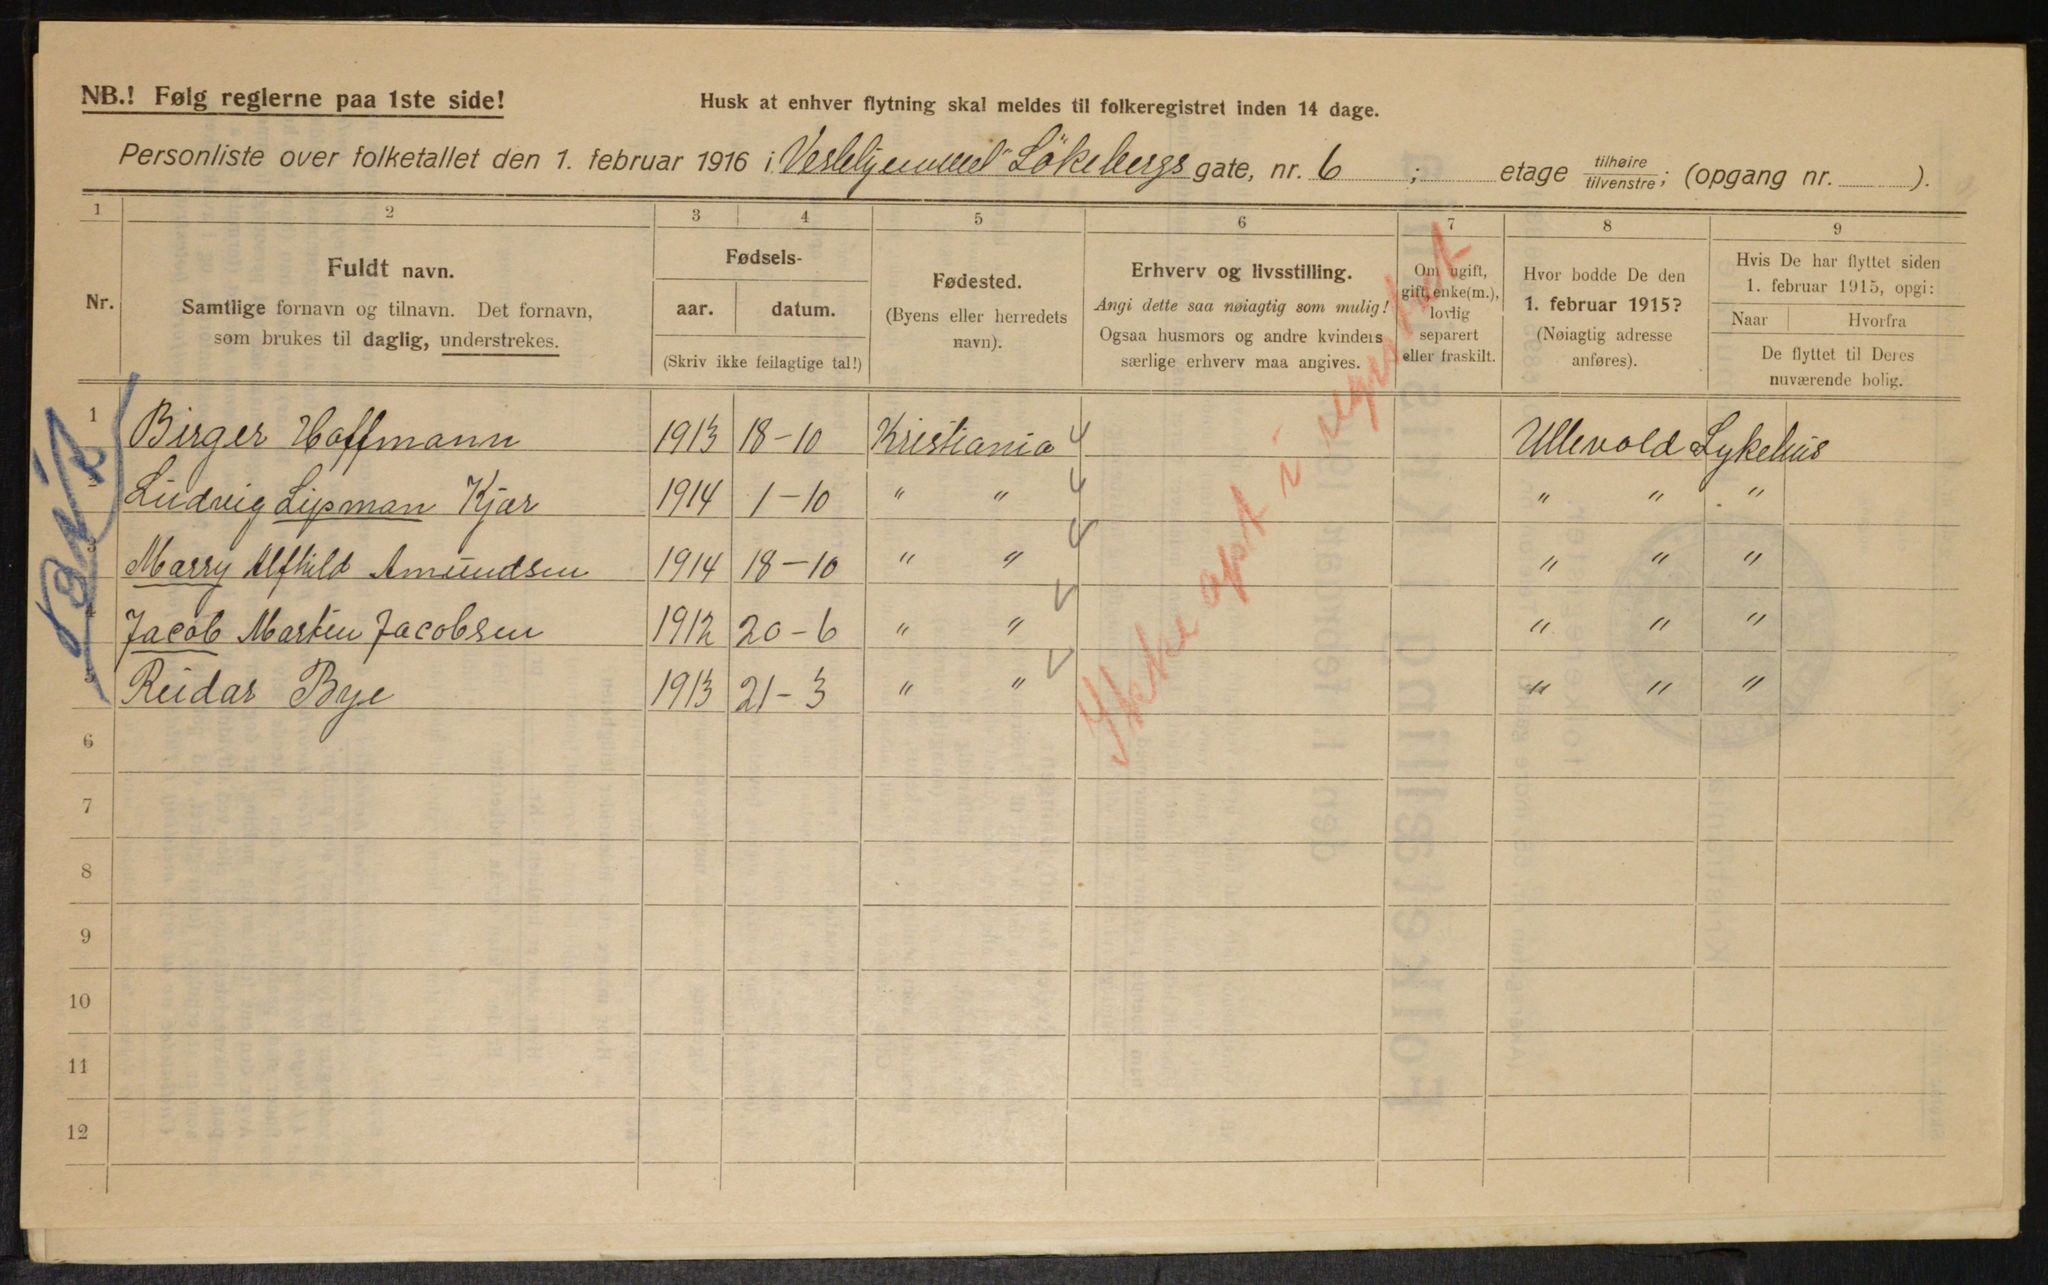 NB.! Følg reglerne paa 1ste side!
Husk at enhver flytning skal meldes til folkeregistret inden 14 dage.
Personliste over folketallet den 1. februar 1916 i Løkebergs gate, nr. 6 ; etage tilhøire/tilvenstre; (opgang nr. ).
1 2 3 4 5 6 7 8 9
Nr.
Fuldt navn.
Samtlige fornavn og tilnavn. Det fornavn,
som brukes til daglig, understrekes.
Fødsels-
aar. datum.
(Skriv ikke feilagtige tal!)
Fødested.
(Byens eller herredets
navn).
Erhverv og livsstilling.
Angi dette saa nøiagtig som mulig!
Ogsaa husmors og andre kvinders
særlige erhverv maa angives.
Om ugift,
gift, enke(m.),
lovlig
separert
eller fraskilt.
Hvor bodde De den
1. februar 1915?
(Nøiagtig adresse
anføres).
Hvis De har flyttet siden
1. februar 1915, opgi:
Naar Hvorfra
De flyttet til Deres
nuværende bolig.
1 Birger Hoffmann 1913 18-10 Kristiania 4 Ullevold Sykehus
2 Ludvig Lipman Kjær 1914 1-10 " " 4 " " "
3 Marry Alfhild Amundsen 1914 18-10 " " 4 " " "
4 Jacob Martin Jacobsen 1912 20-6 " " " " "
5 Reidar Bye 1913 21-3 " " " " "
6
7
8
9
10
11
12
Ikke opt i registret